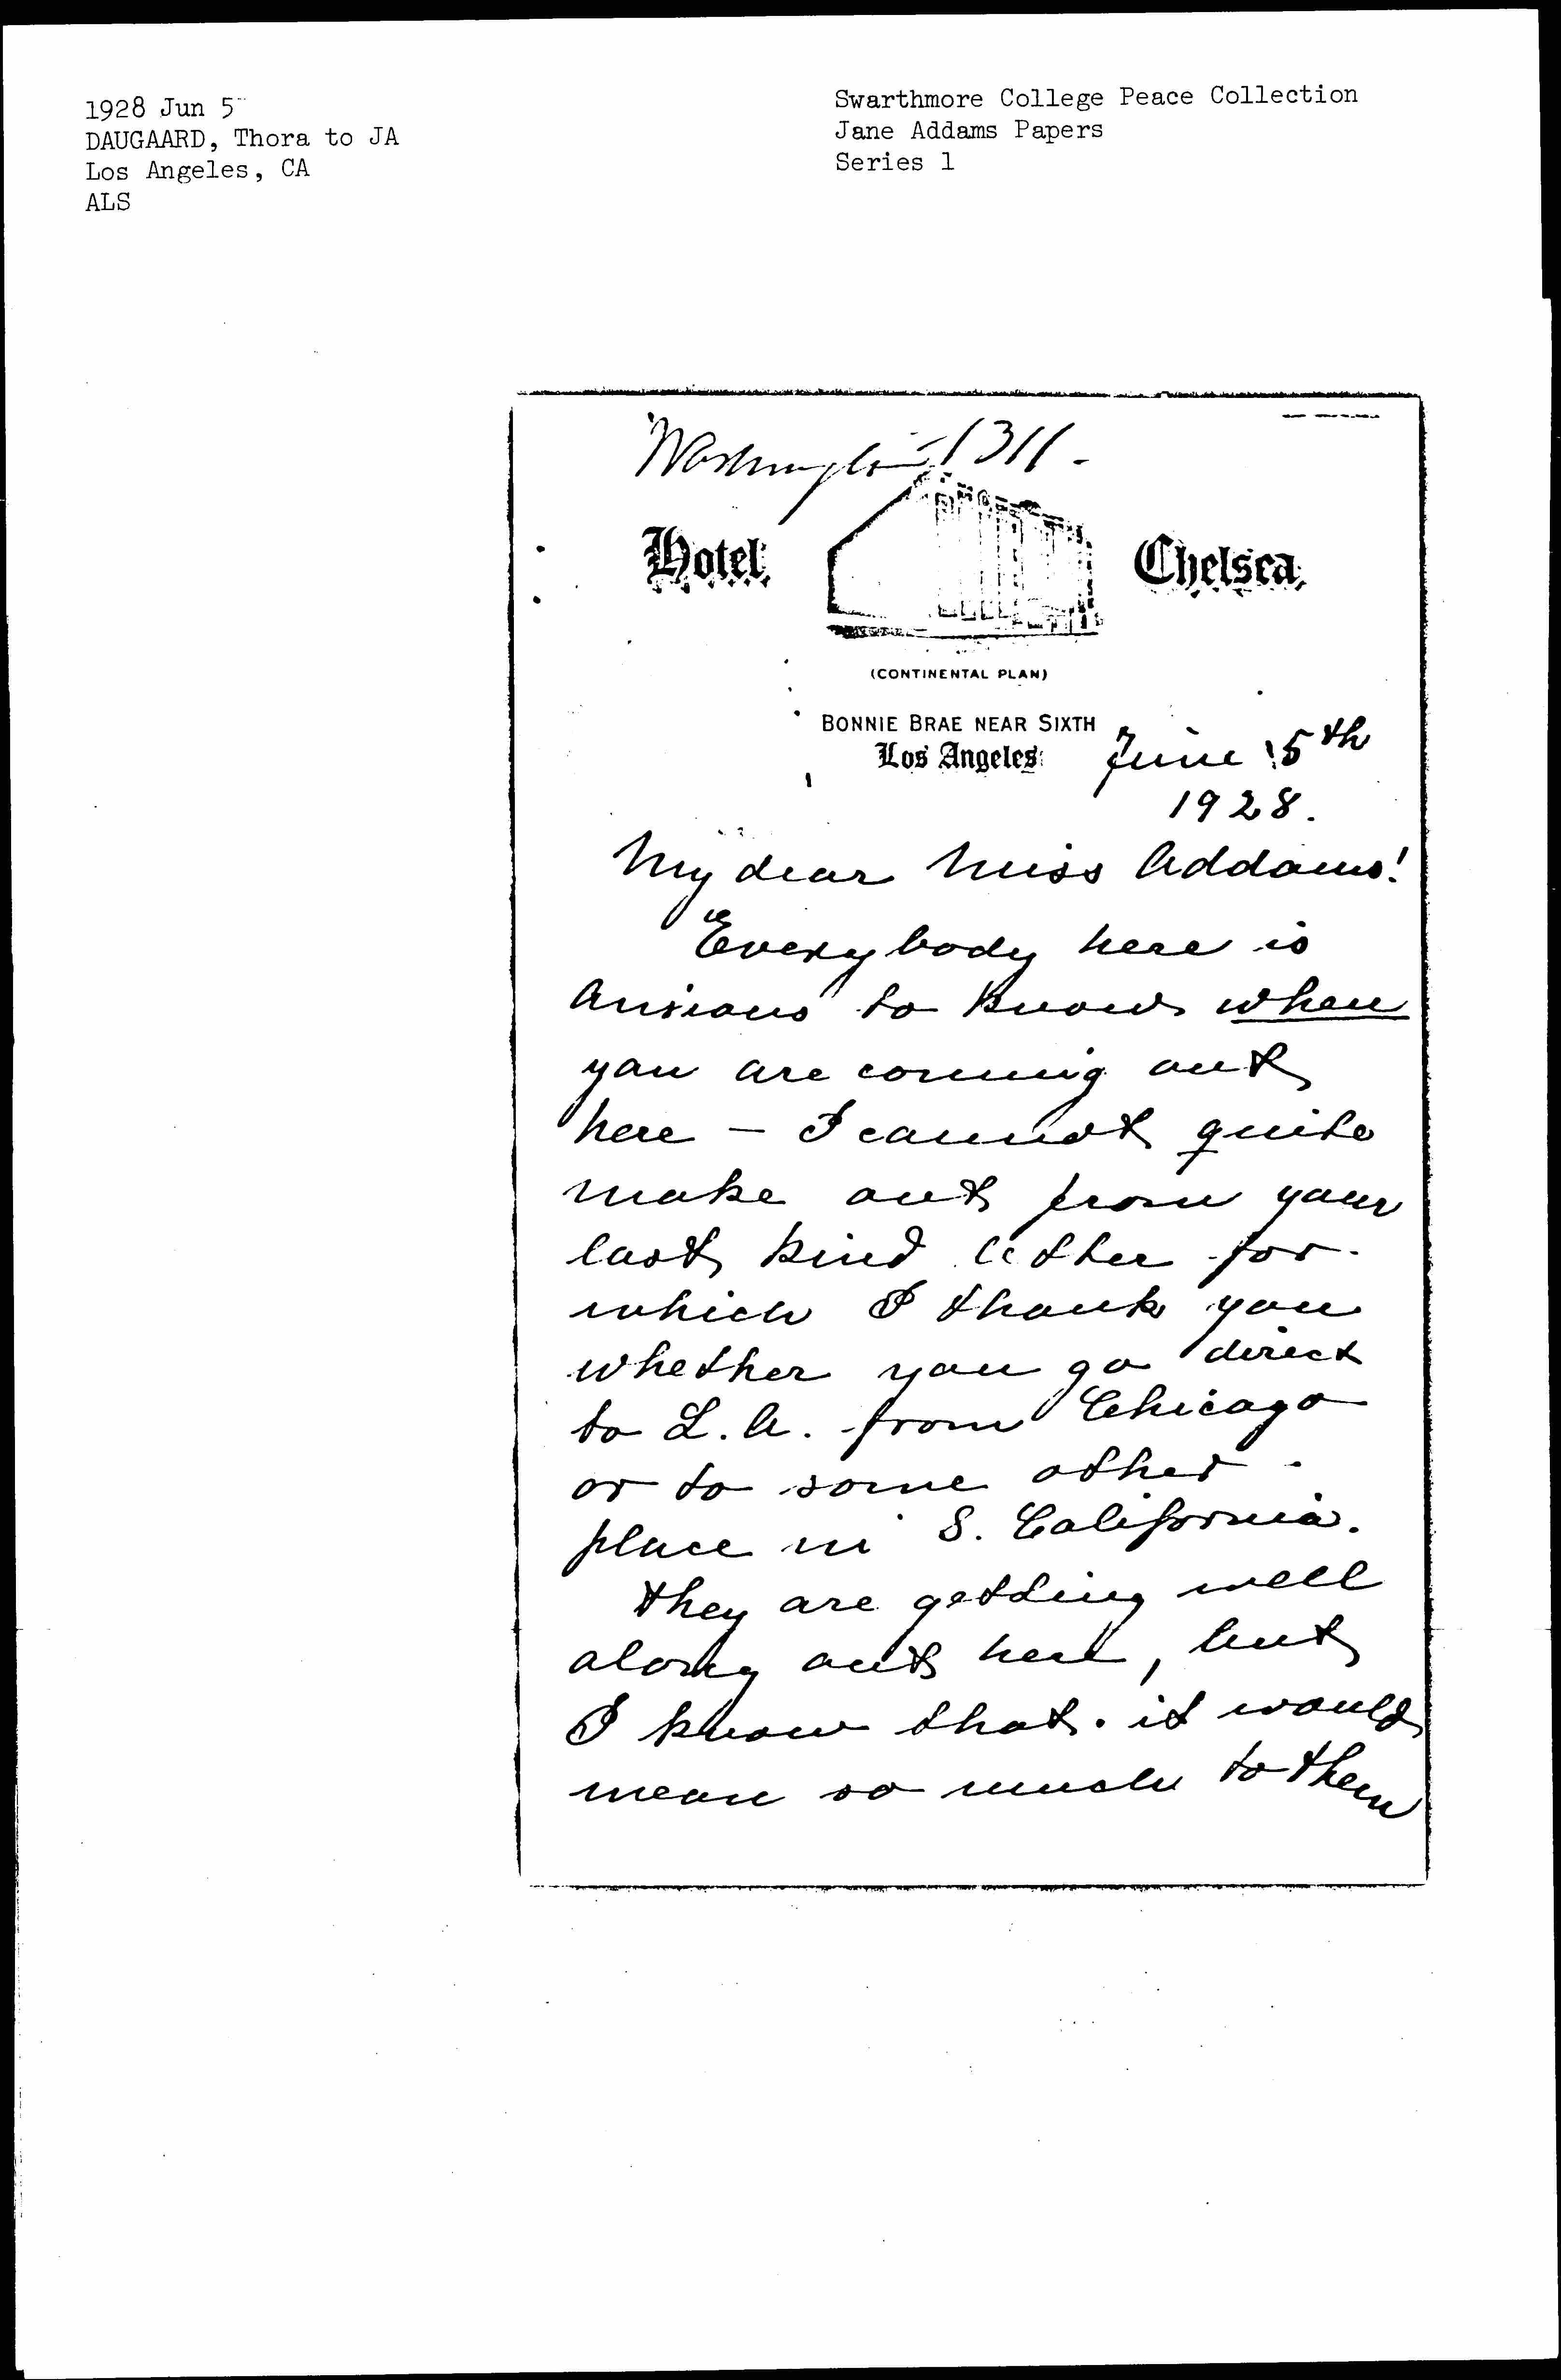 1928 Jun 5
DAUGAARD, Thora to JA
Los Angeles, CA
ALS
Swarthmore College Peace Collection
Jane Addams Papers
Series 1
Washington 1311-
Hotel Chelsea
(CONTINENTAL PLAN)
BONNIE BRAE NEAR SIXTH
Los Angeles June 5th
1928.
My dear Miss Addams!
Everybody here is
anxious to know when
you are coming out
here - I cannot quite
make out from your
last kind letter for
which I thank you
whether you go direct
to L.A. from Chicago
or to some other
place in S. California.
They are getting well
along out here, but
I know that it would
mean so much to them